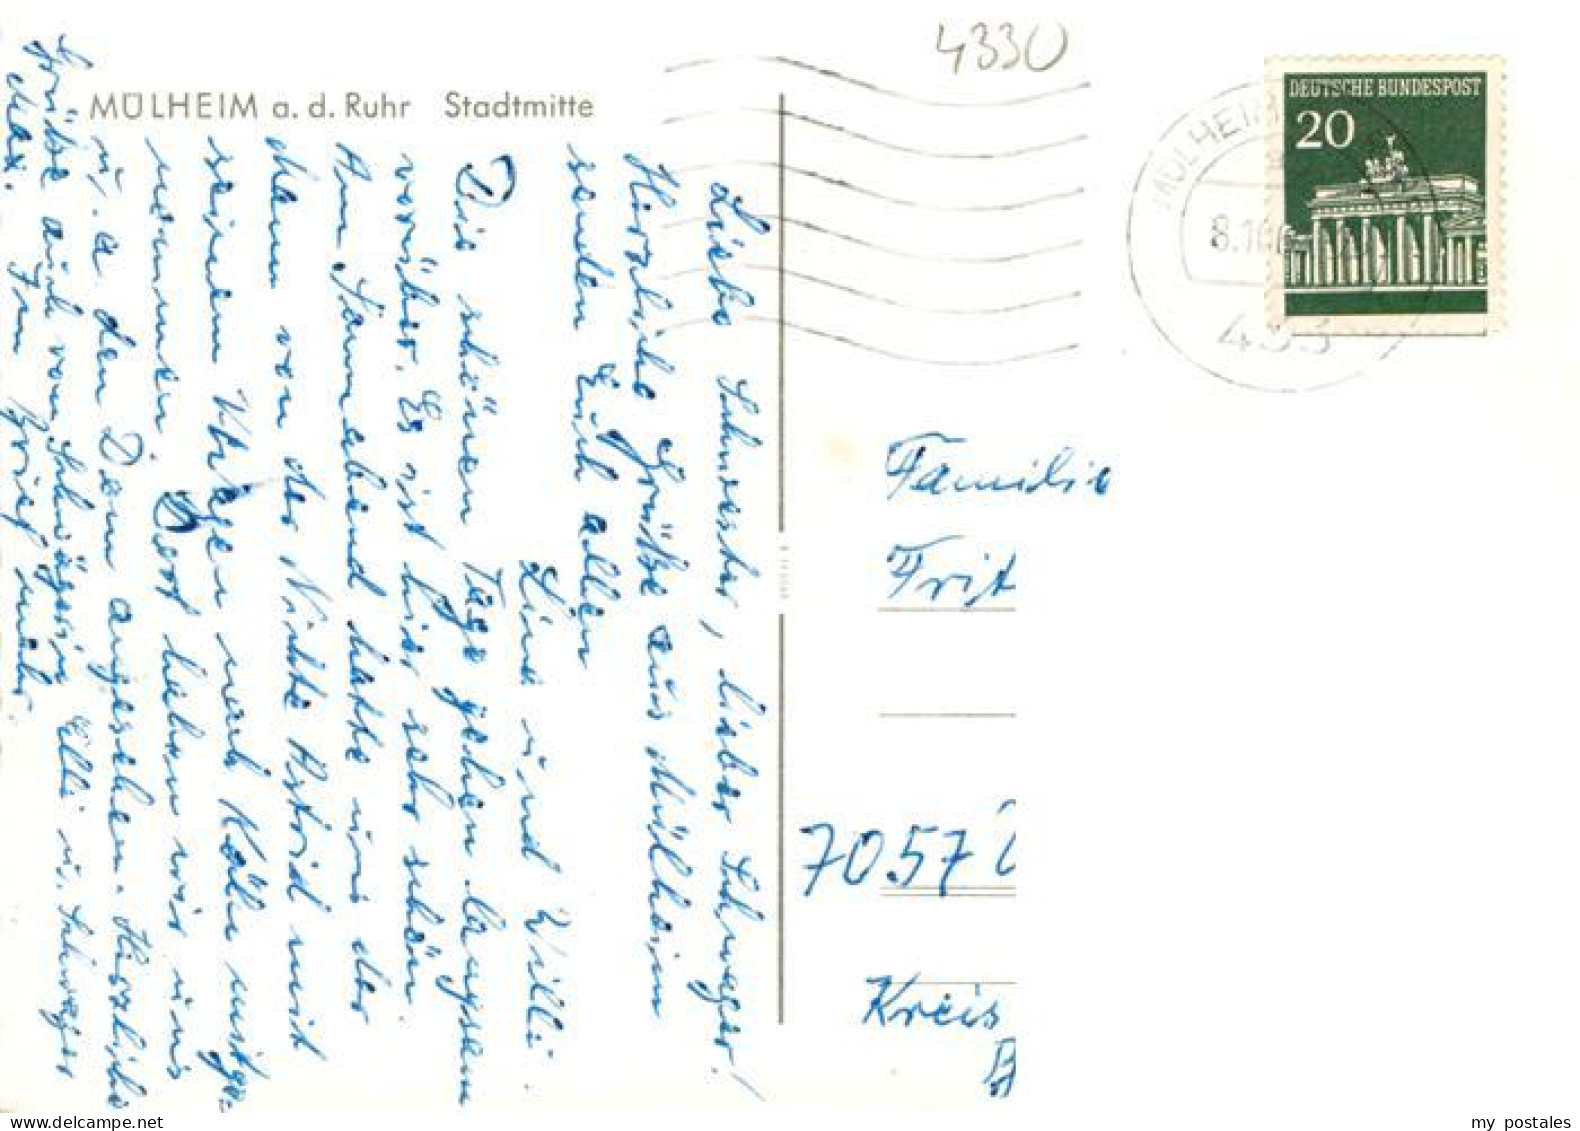 4330
MÜLHEIM a. d. Ruhr Stadtmitte
DEUTSCHE BUNDESPOST
20
MÜLHEIM
8.10
433
Liebe Schwester, lieber Schwager!
Herzliche Grüße aus Mülheim
senden Euch allen
Line und Willi.
Die schönen Tage gehen langsam
vorüber. Es ist hier sehr schön.
Am Sonnabend hatte uns der
Mann von der Nichte Astrid mit
seinem Wagen nach Köln mitge-
nommen. Dort haben wir uns
u. a. den Dom angesehen. Herzliche
Grüße auch von Schwägerin Elli u. Schwager
Max. Im Brief mehr.
Familie
Frit
7057
Kreis
my postales